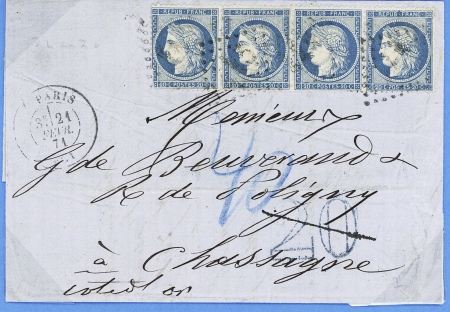 REPUB FRANC REPUB FRANC REPUB FRANC REPUB FRANC
20 C POSTES 20 C 20 C POSTES 20 C 20 C POSTES 20 C 20 C POSTES 20 C
PARIS
21
FEVR.
71
Monsieur
G de Beuverand &
R de Poligny
40
20
à Chassagne